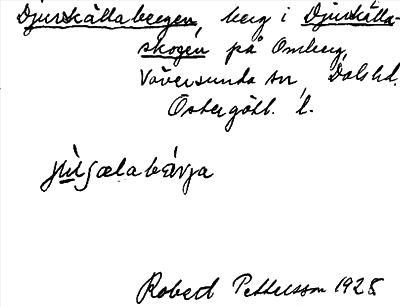 Djurkällabergen, berg i Djurkälla-
skogen på Omberg,
Väversunda sn, Dals hd.
Östergötl. l.
Robert Pettersson 1928